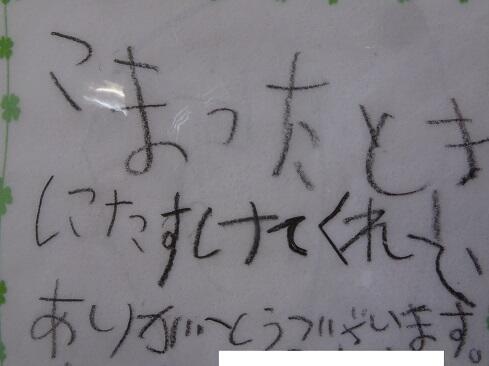 こまったとき
にたすけてくれて、
ありがとうございます。